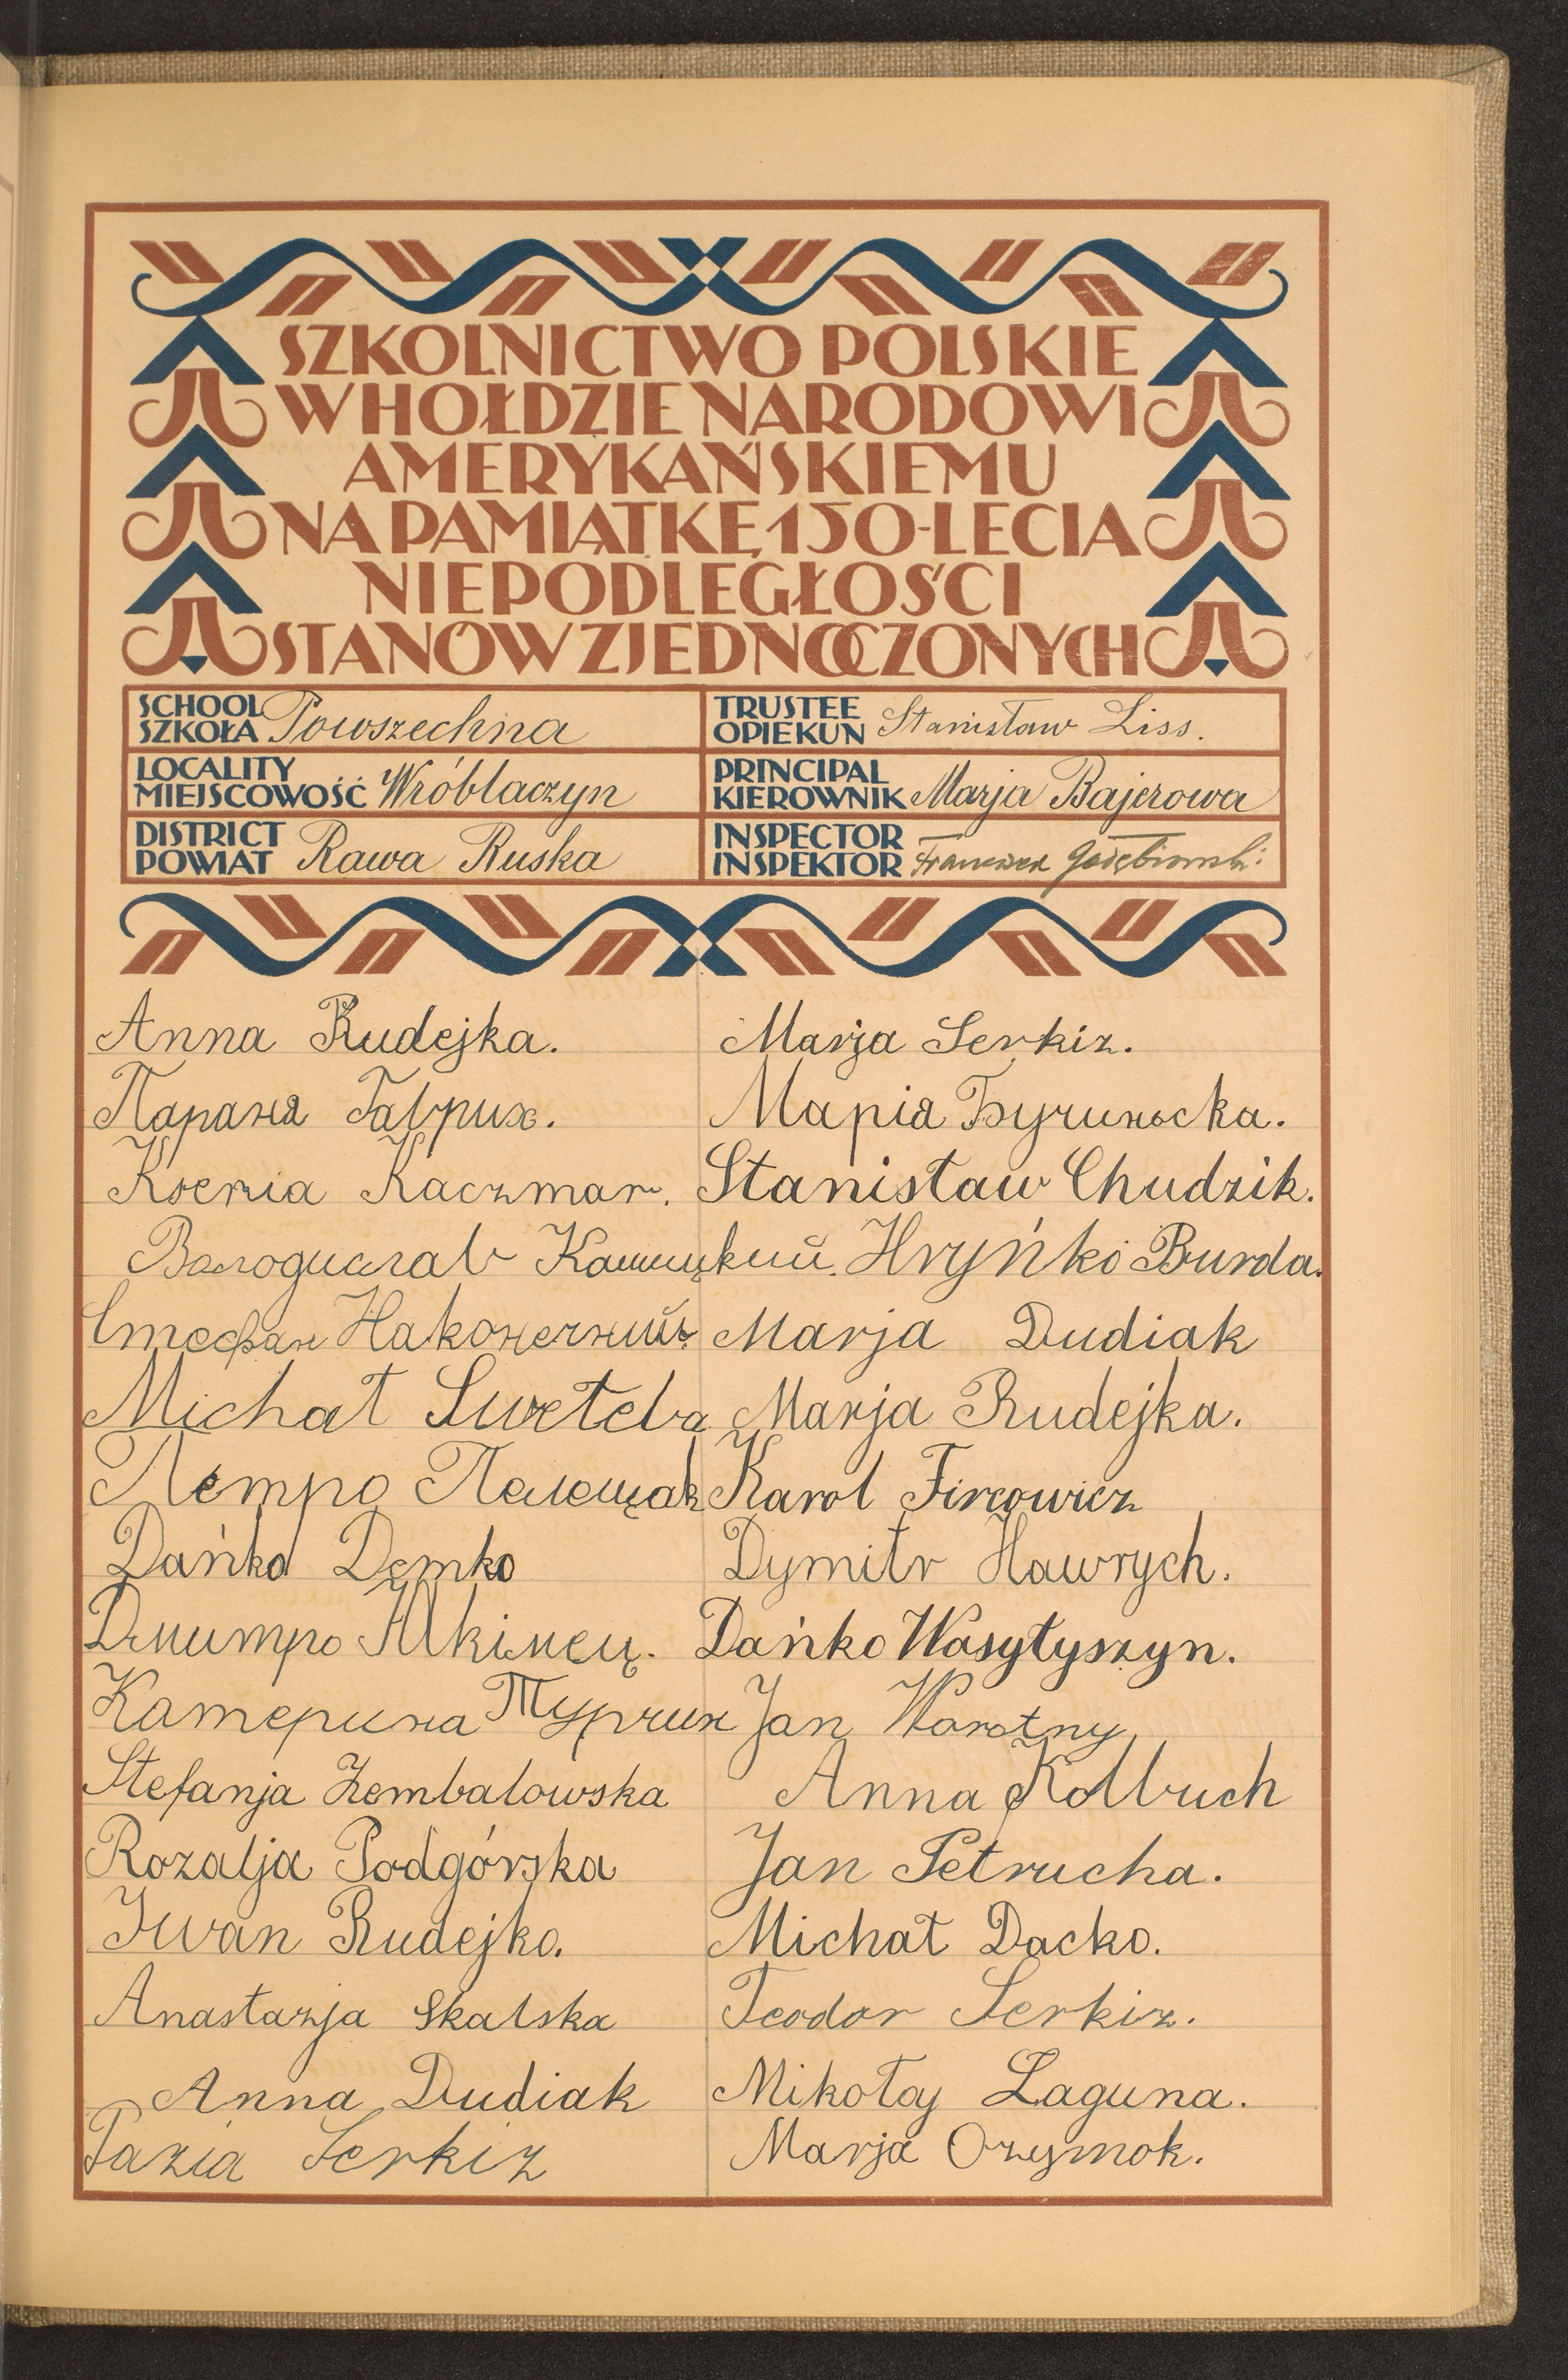 SZKOLNICTWO POLSKIE
W HOŁDZIE NARODOWI
AMERYKAŃSKIEMU
NA PAMIĄTKĘ 150-LECIA
NIEPODLEGŁOŚCI
STANÓW ZJEDNOCZONYCH
SCHOOL
SZKOŁA Powszechna
TRUSTEE
OPIEKUN Stanisław Liss.
LOCALITY
MIEJSCOWOŚĆ Wróblaczyn
PRINCIPAL
KIEROWNIK Marja Bajerowa
DISTRICT
POWIAT Rawa Ruska
INSPECTOR
INSPEKTOR Franciszek Gołębiowski
Anna Rudejka.
Параня Гаврих.
Ksenia Kaczmar.
Володислав
Стефан Наконечний
Michał
Петро
Dańko Demko
Дмитро
Катерина Турчин
Stefanja Zembalowska
Rozalja Podgórska
Iwan Rudejko.
Anastazja Skalska
Anna Dudiak
Pazia Serkiz
Marja Serkiz.
Марія Бучиньска.
Stanisław Chudzik.
Hryńko Burda.
Marja Dudiak
Marja Rudejka.
Karol Fircowicz
Dymitr Hawrych.
Dańko Wasyłyszyn.
Jan Worotny
Anna Kolbuch
Jan Petrucha.
Michał Dacko.
Teodor Serkiz.
Mikołaj Laguna.
Marja Ozymok.